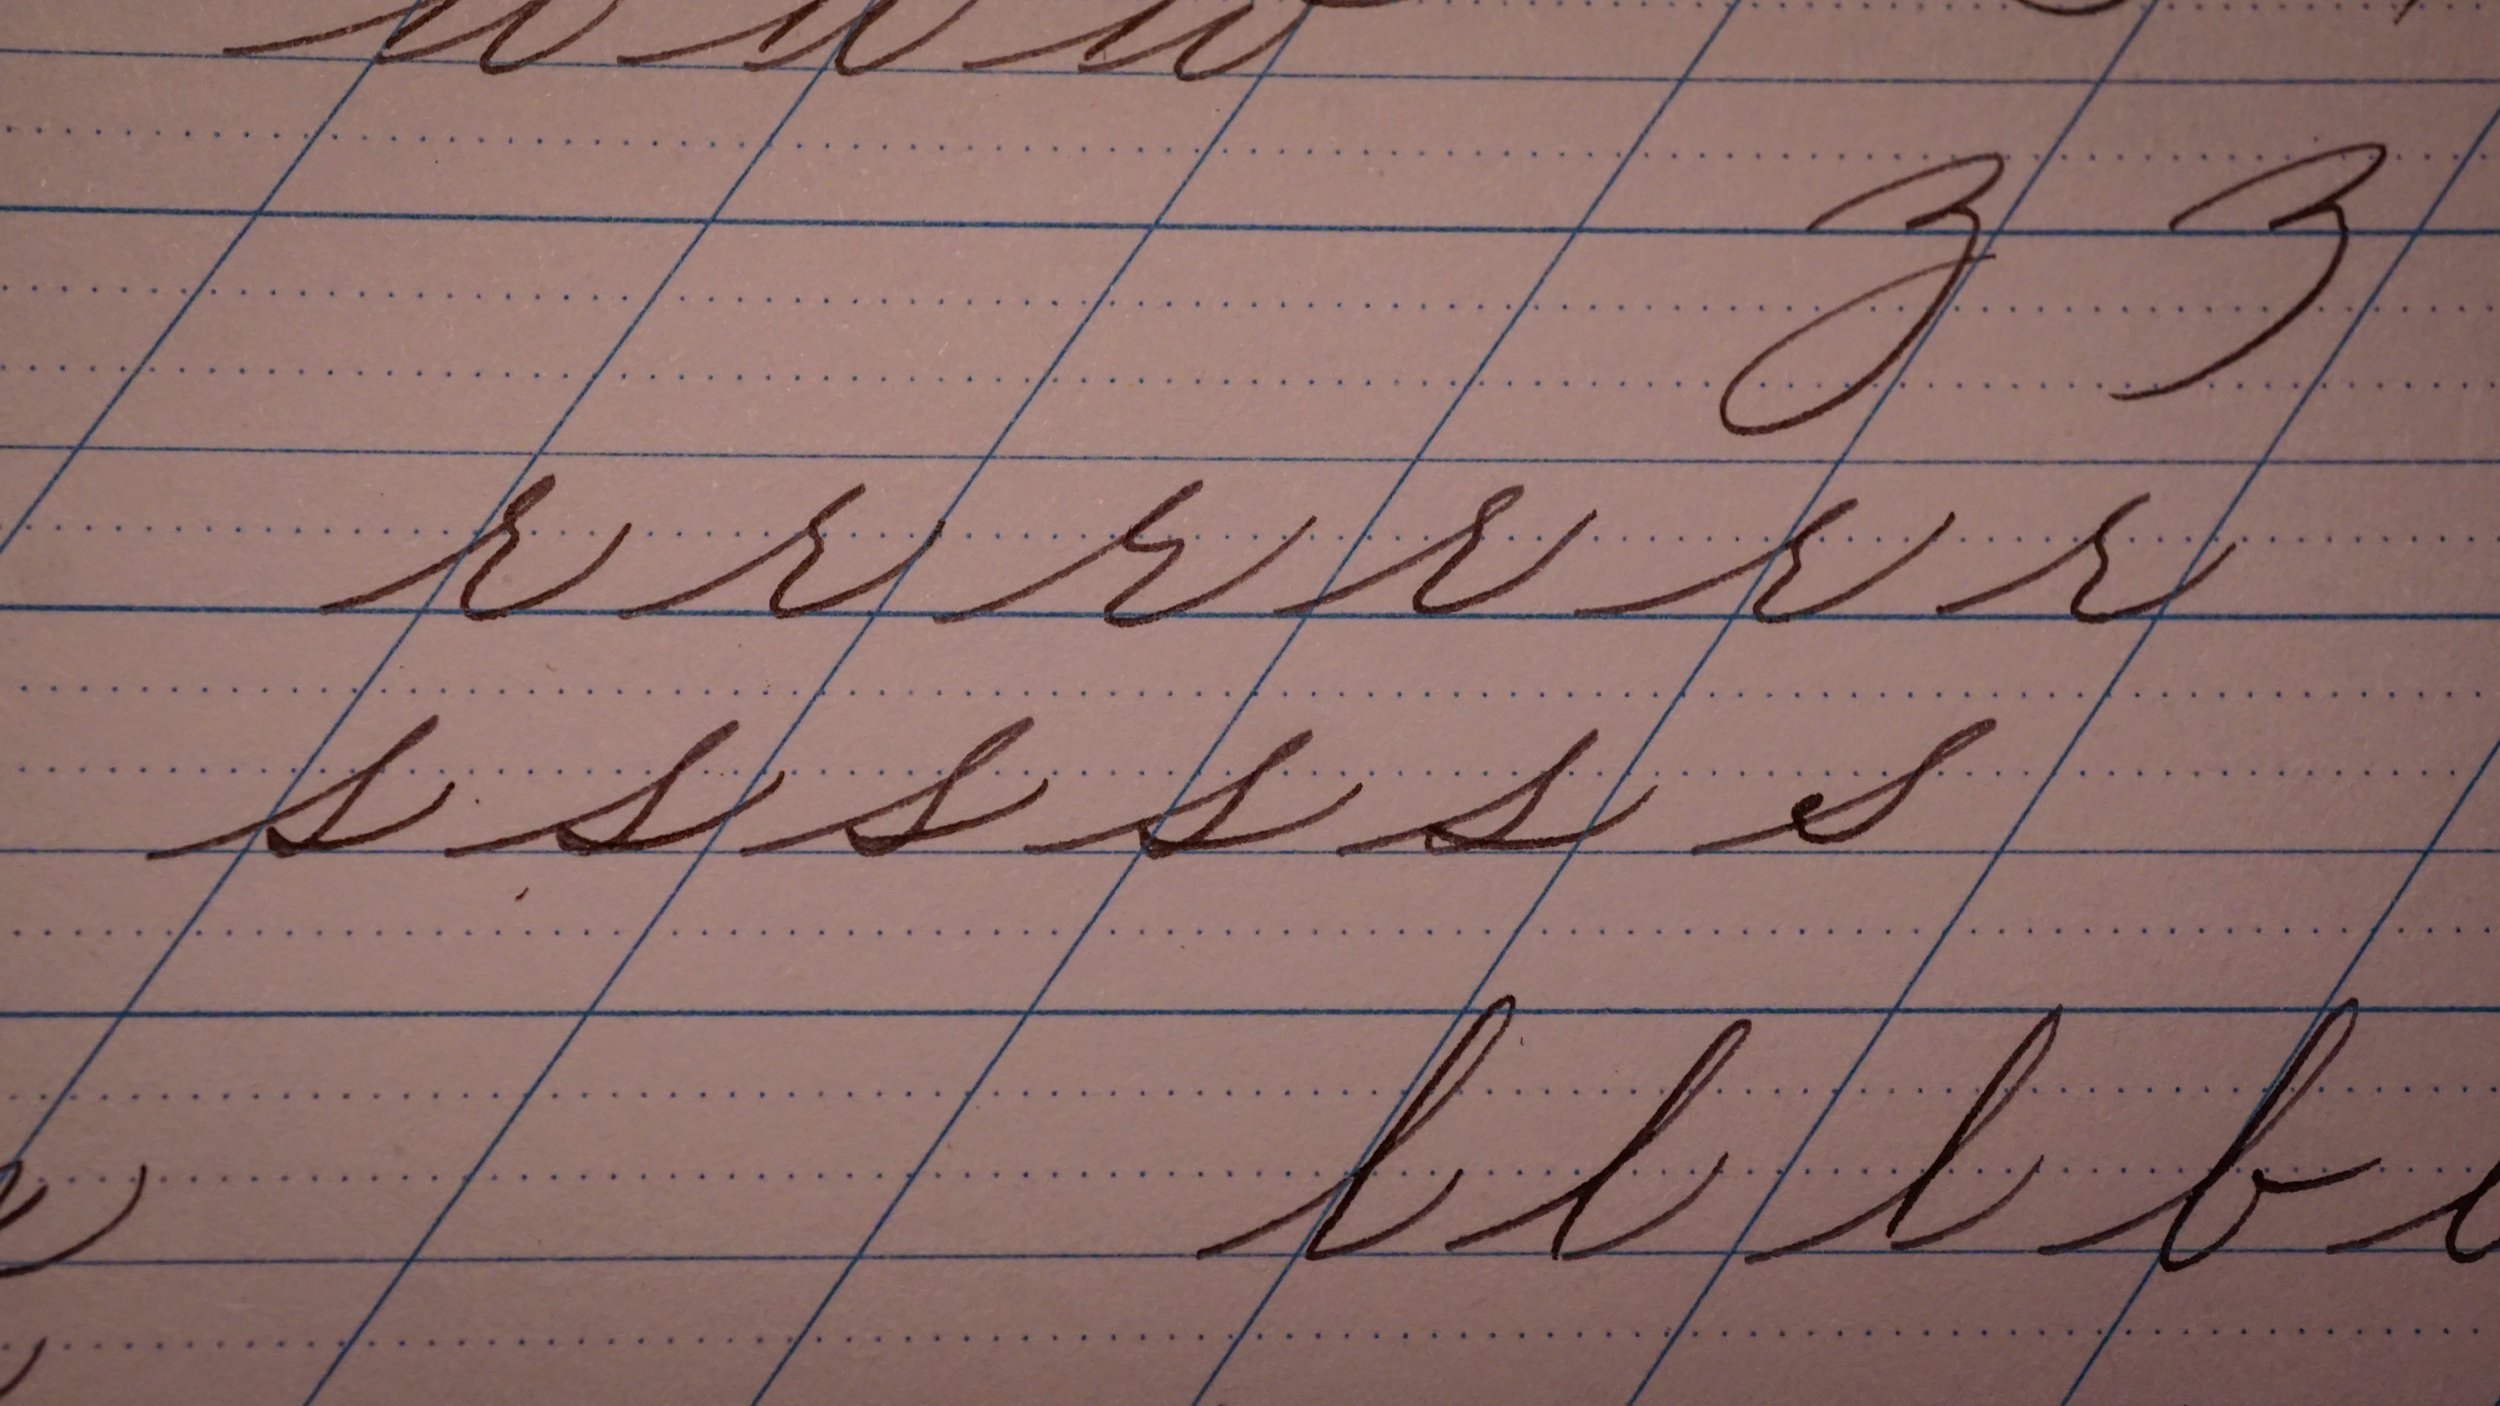 z z
r r r r r r
s s s s s s
l l l b